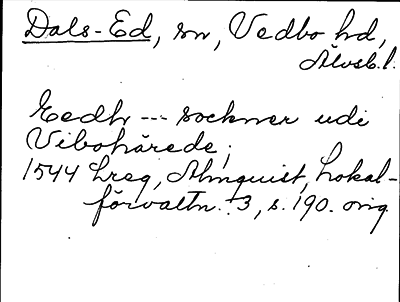 Dals-Ed, sn, Vedbo hd,
Älvsb.l.
Eedh --- sockner udi
Vibohärede;
1544 Lreg, Almquist, Lokal-
förvaltn. 3, s. 190. orig.